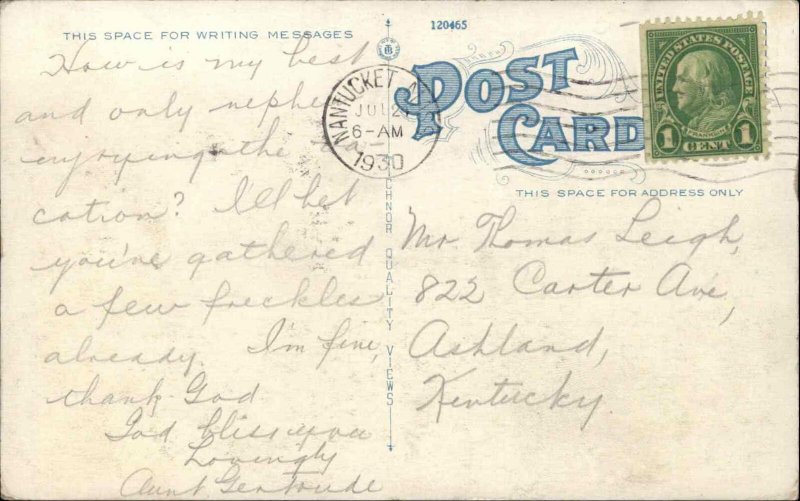 THIS SPACE FOR WRITING MESSAGES
How is my best
and only nephew
enjoying the va-
cation? I'll bet
you've gathered
a few freckles
already. I'm fine,
thank God.
God bless you
Lovingly
Aunt Gertrude
120465
POST
CARD
NANTUCKET
JUL 2
6-AM
1930
UNITED STATES POSTAGE
FRANKLIN
1 CENT 1
THIS SPACE FOR ADDRESS ONLY
Mr. Thomas Leigh,
822 Carter Ave,
Ashland,
Kentucky.
QUALITY VIEWS